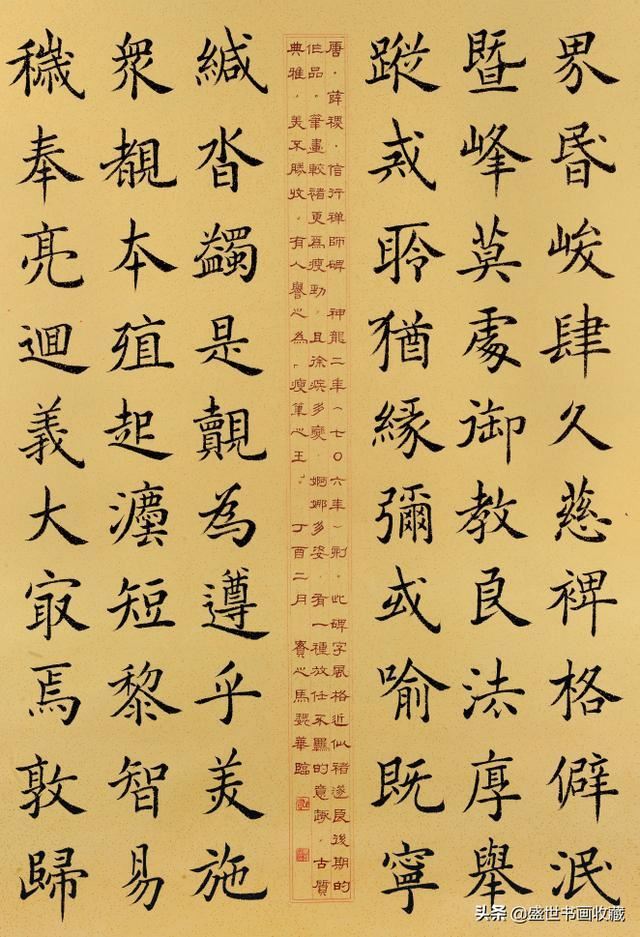 界昬峻肆久慈裨格僻泯
暨峰莫處御教良法厚舉
蹤戒聆猶緣彌或喻既寧
唐·薛稷·信行禅師碑 神龍二年(七〇六年)刻。此碑字風格近似褚遂良後期的
作品。筆畫較褚更爲瘦勁，且徐疾多變，婀娜多姿，有一種放任不羈的意趣。古質
典雅，美不勝收。有人譽之為「瘦筆之王」。丁酉二月 馬 華臨
緘沓蠲是覿為遵乎美施
衆覩本殖起瀍短黎智易
穢奉亮迴義大㝡焉敦歸
头条 @盛世书画收藏